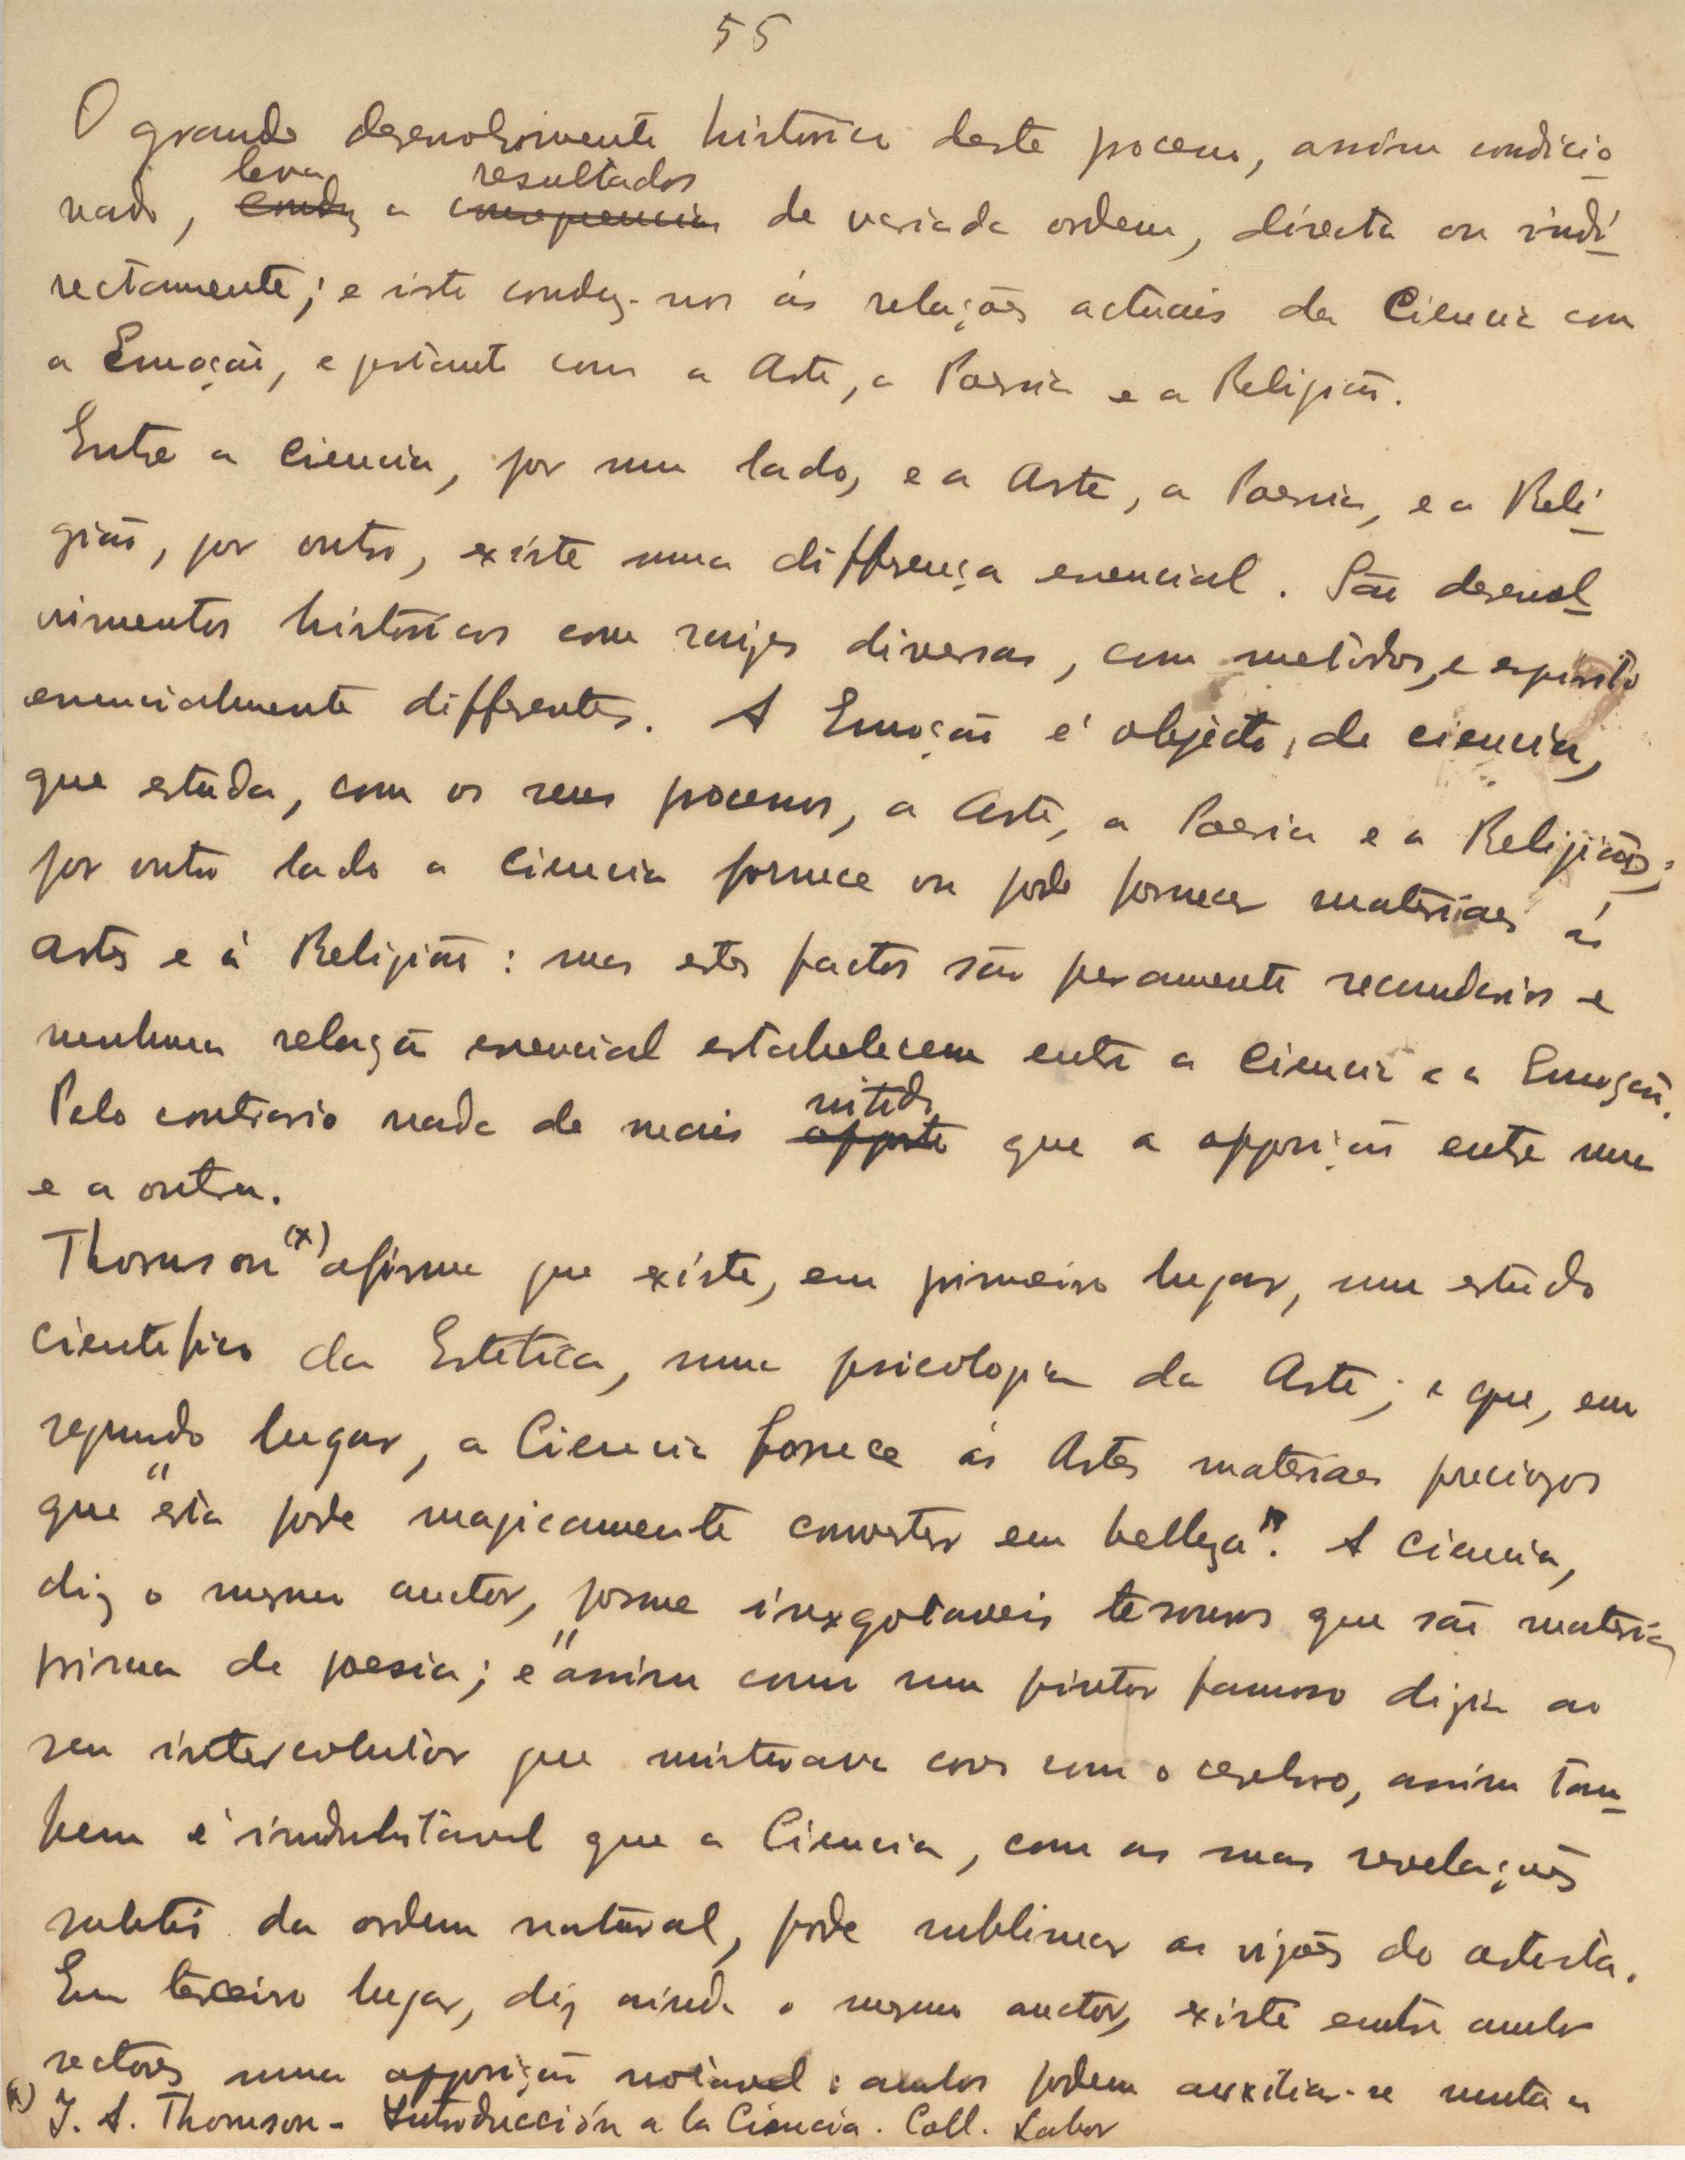 55
O grande desenvolvimento historico deste processo, assim condicio
leva resultados
nado, conduz a consequencias de variada ordem, directa ou indi
rectamente; e isto conduz-nos ás relações actuais da Ciencia com
a Emoção, e portanto com a Arte, a Poesia e a Religião.
Entre a Ciencia, por um lado, e a Arte, a Poesia, e a Reli
gião, por outro, existe uma differença essencial. São desenvol
vimentos históricos com raizes diversas, com metodos, e espirito
essencialmente differentes. A Emoção é objecto, de ciencia,
que estuda, com os seus processos, a Arte, a Poesia e a Religião;
por outro lado a Ciencia fornece ou pode fornecer materiaes ás
artes e á Religião: mas estes factos são puramente secundarios e
nenhuma relação essencial estabelecem entre a Ciencia e a Emoção.
nitido
Pelo contrario nada de mais opposto que a opposição entre uma
e a outra.
Thomson (x) afirma que existe, em primeiro lugar, um estudo
cientifico da Estetica, uma psicologia da Arte; e que, em
segundo lugar, a Ciencia fornece ás Artes materiaes preciozos
que "esta pode magicamente converter em belleza". A Ciencia,
diz o mesmo auctor, forma inexgotaveis tesouros que são materia
prima de poesia; e "assim como um pintor famoso dizia ao
seu interlocutor que misturava cores com o cerebro, assim tam
bem é indubitavel que a Ciencia, com as suas revelações
subtis da ordem natural, pode sublimar as vizões do artista.
Em terceiro lugar, diz ainda o mesmo auctor, existe entre ambos
sectores uma opposição notavel: ambos podem auxiliar-se muta a
(x) J. A. Thomson - Introducción a la Ciencia. Coll. Labor